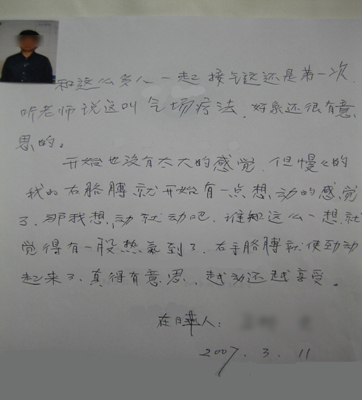 和这么多人一起接气这还是第一次
听老师说这叫气场疗法,好象还很有意
思的。
开始也没有太大的感觉,但慢々的
我的右胳膊就开始有一点想动的感觉
了,那我想,动就动吧,谁知这么一想,就
觉得有一股热氣到了,右手胳膊就使劲动
起来了,真得有意思,越动还越享受。
在日華人:
2007. 3. 11